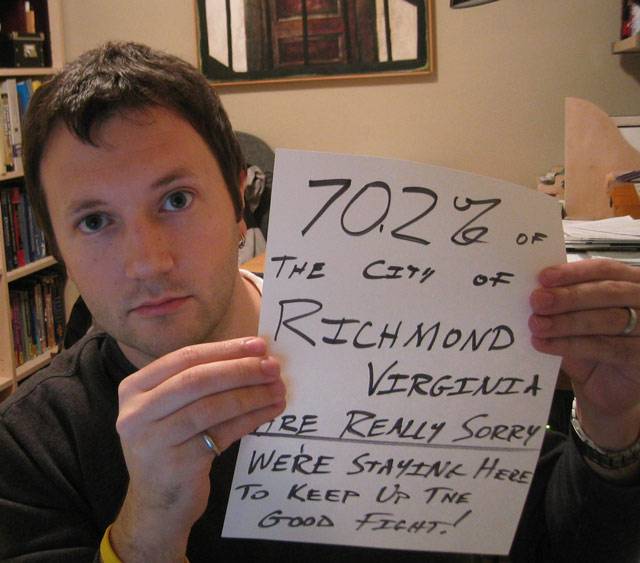 70.2% OF
THE CITY OF
RICHMOND
VIRGINIA
ARE REALLY SORRY
WE'RE STAYING HERE
TO KEEP UP THE
GOOD FIGHT!